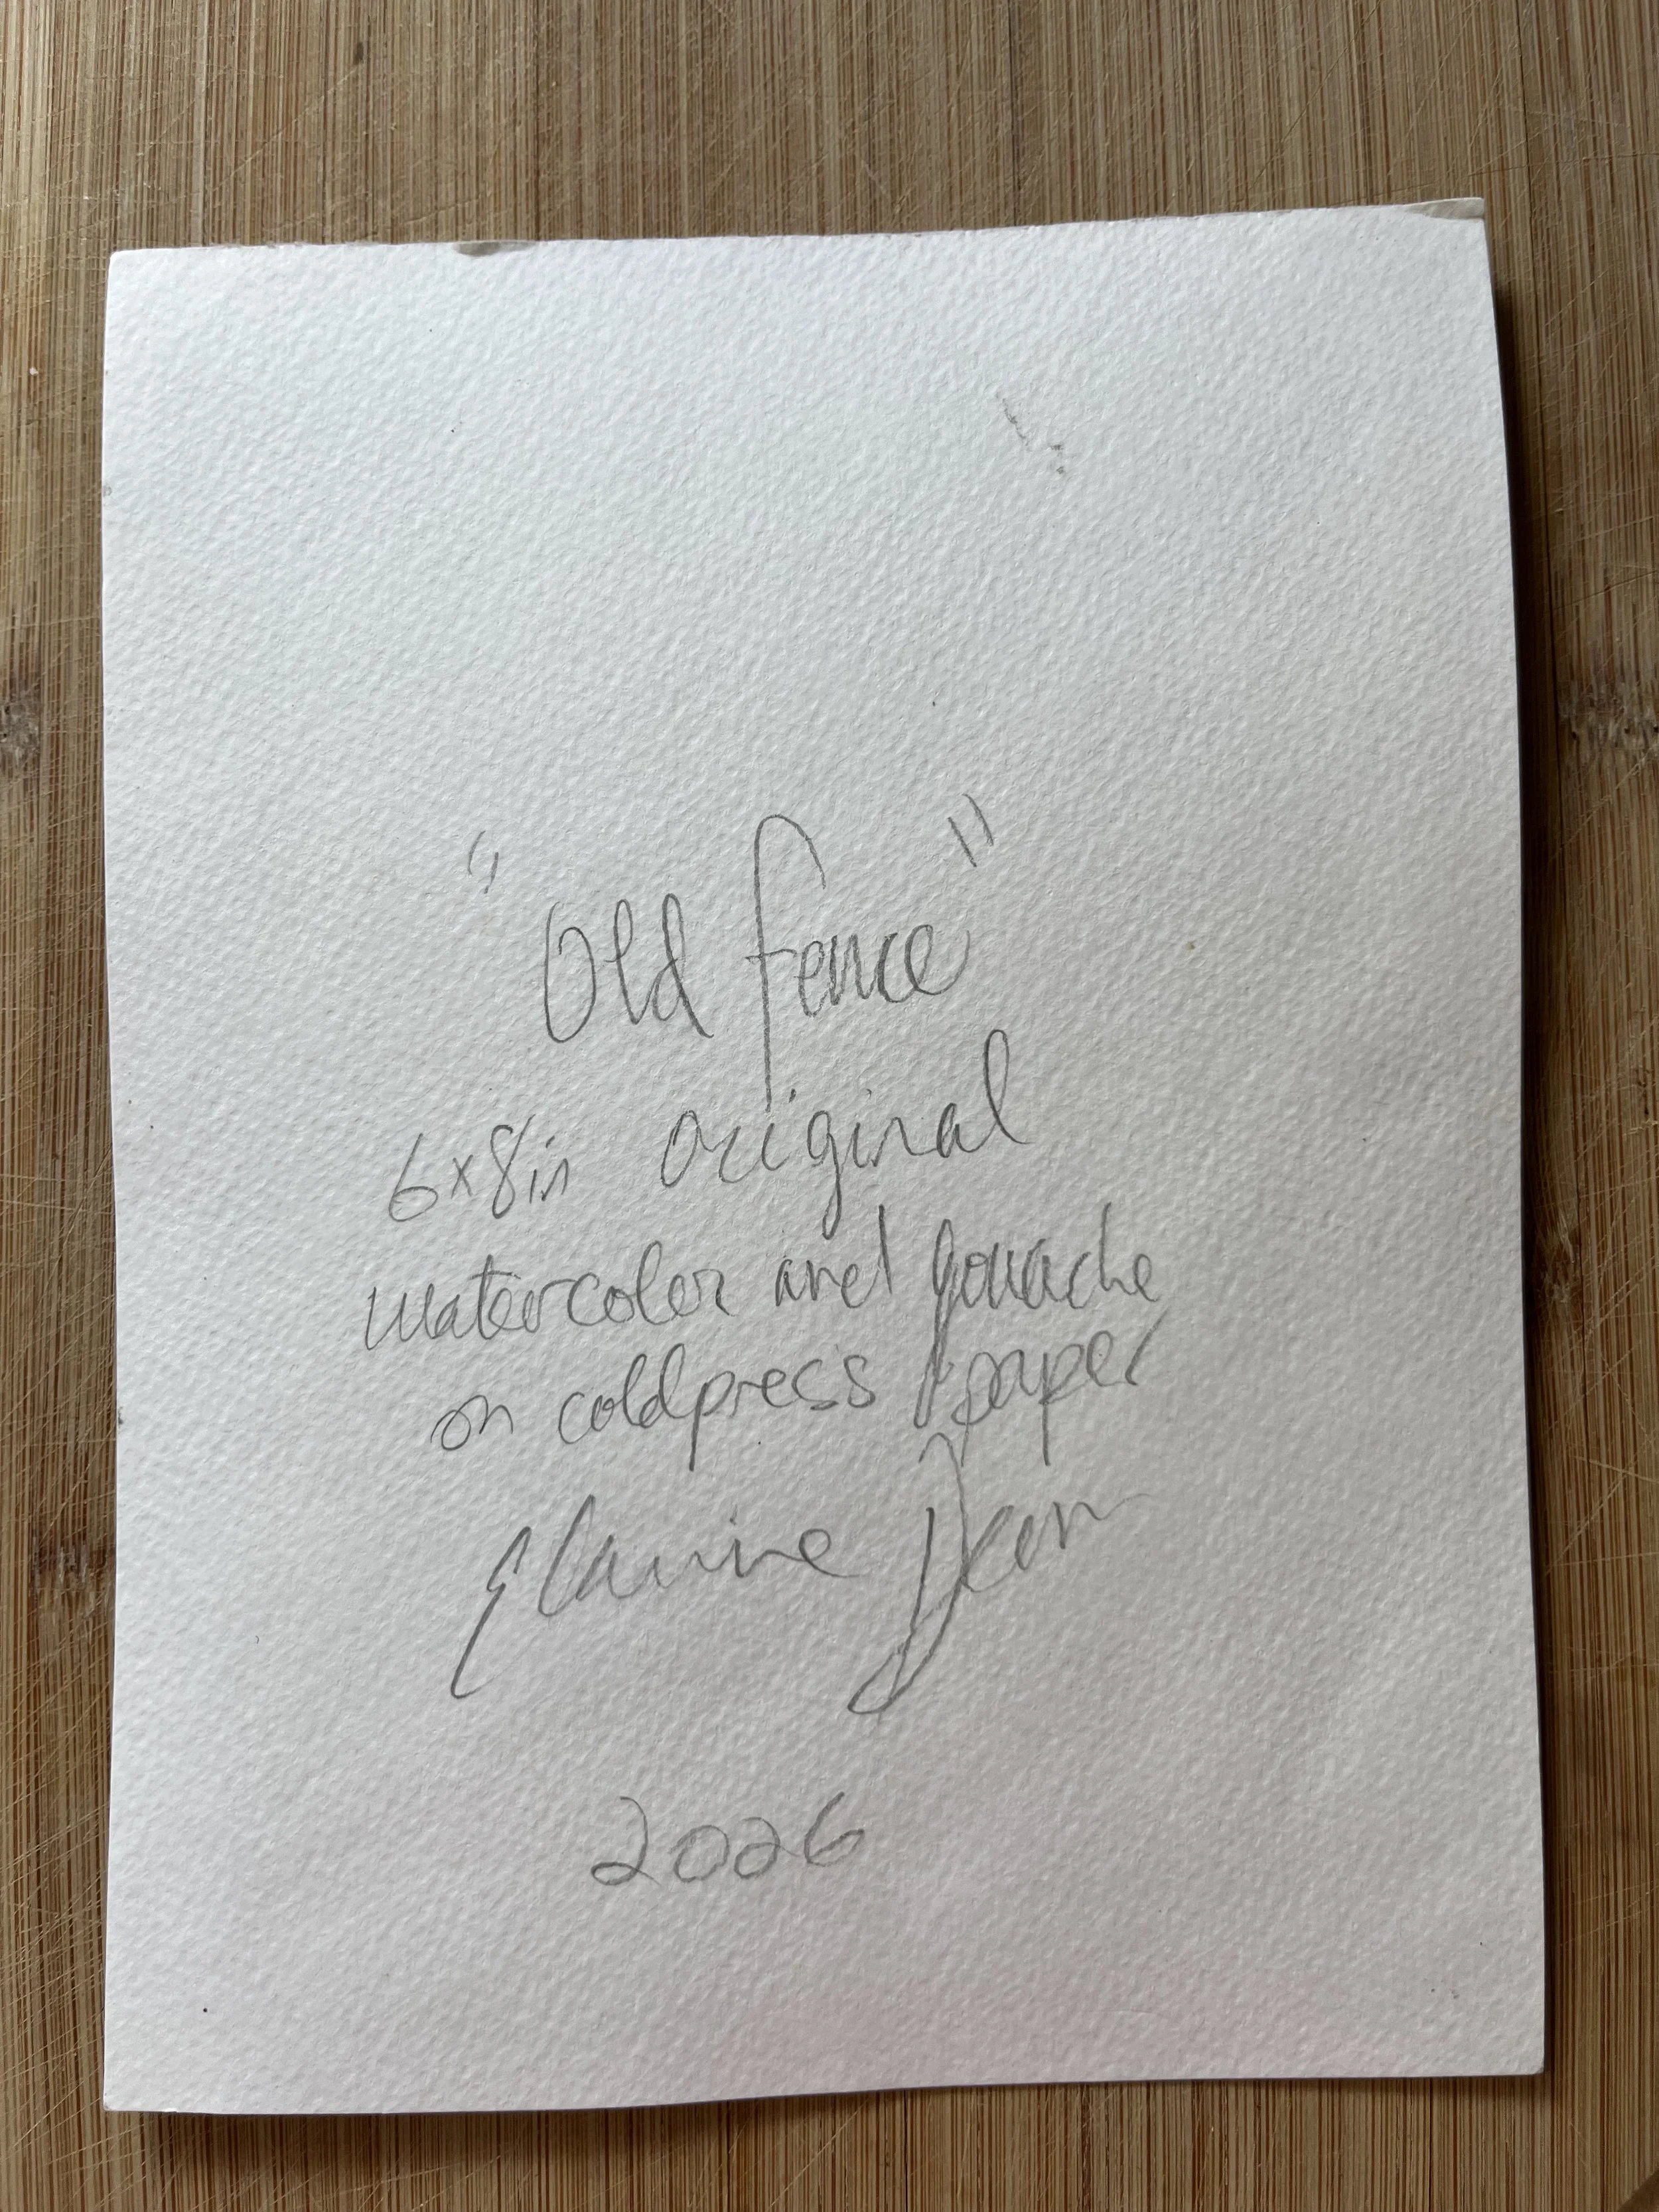 "Old fence"
6x8in original
watercolor and gouache
on coldpress paper
Elaine Dean
2026